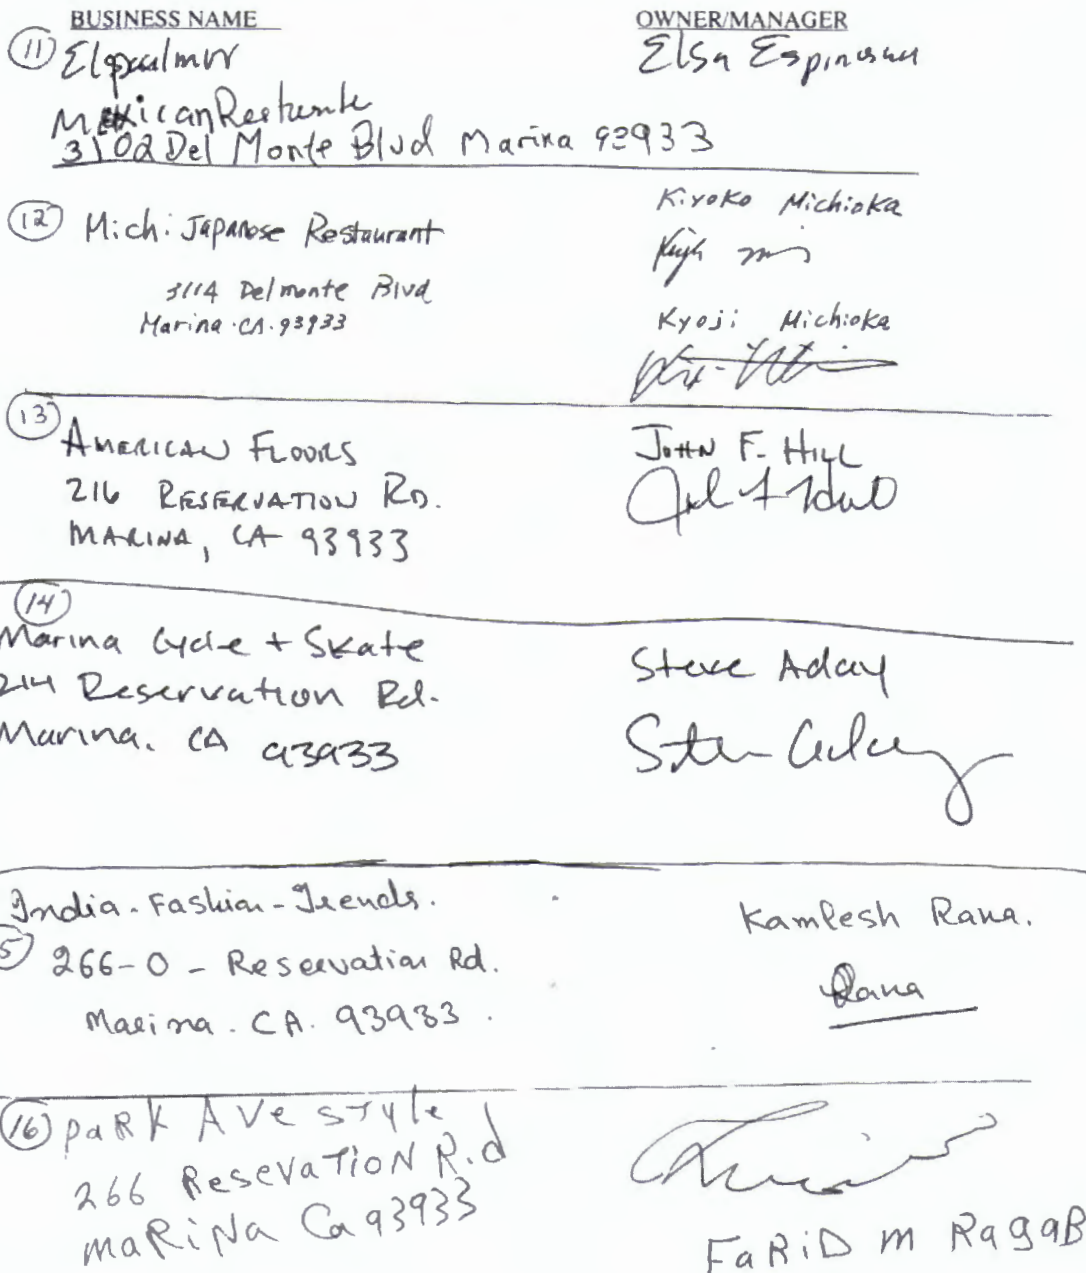 BUSINESS NAME OWNER/MANAGER
11 Elsa
Mexican
3102 Del Monte Blvd Marina 93933
12 Michi Japanese Restaurant
3114 Delmonte Blvd
Marina. CA. 93933
Kiyoko Michioka
Kyoji Michioka
13
AMERICAN FLOORS
216 RESERVATION RD.
MARINA, CA 93933
JOHN F. HILL
14
Marina Cycle + Skate
214 Reservation Rd.
Marina. CA 93933
Steve Aday
India-Fashion-Trends.
5 266-O - Reservation Rd.
Marina. CA. 93933.
Kamlesh Rana.
Rana
16 PARK AVe STYle
266 ReseVaTioN R.d
maRiNa Ca 93933
FaRiD m RagaB